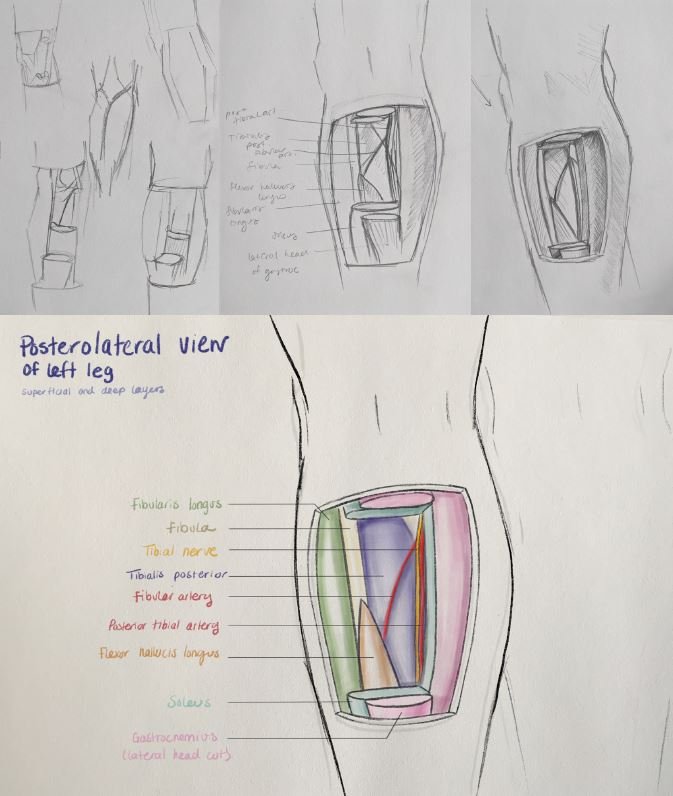 post
Tibialis
post
Fibular
art.
fibula
flexor hallucis
longus
fibularis
longus
soleus
lateral head
of gastroc
Posterolateral view
of left leg
superficial and deep layers
Fibularis longus
Fibula
Tibial nerve
Tibialis posterior
Fibular artery
Posterior tibial artery
Flexor hallucis longus
Soleus
Gastrocnemius
(lateral head cut)